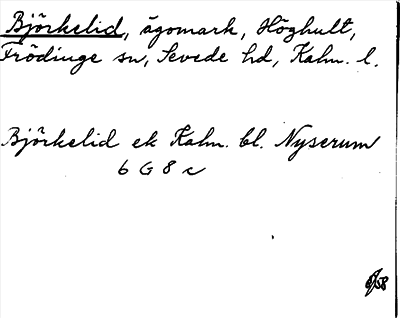 Björkelid, ägomark, Höghult,
Frödinge sn, Sevede hd, Kalm. l.
Björkelid ek Kalm. bl. Nyserum
6 G 8 c